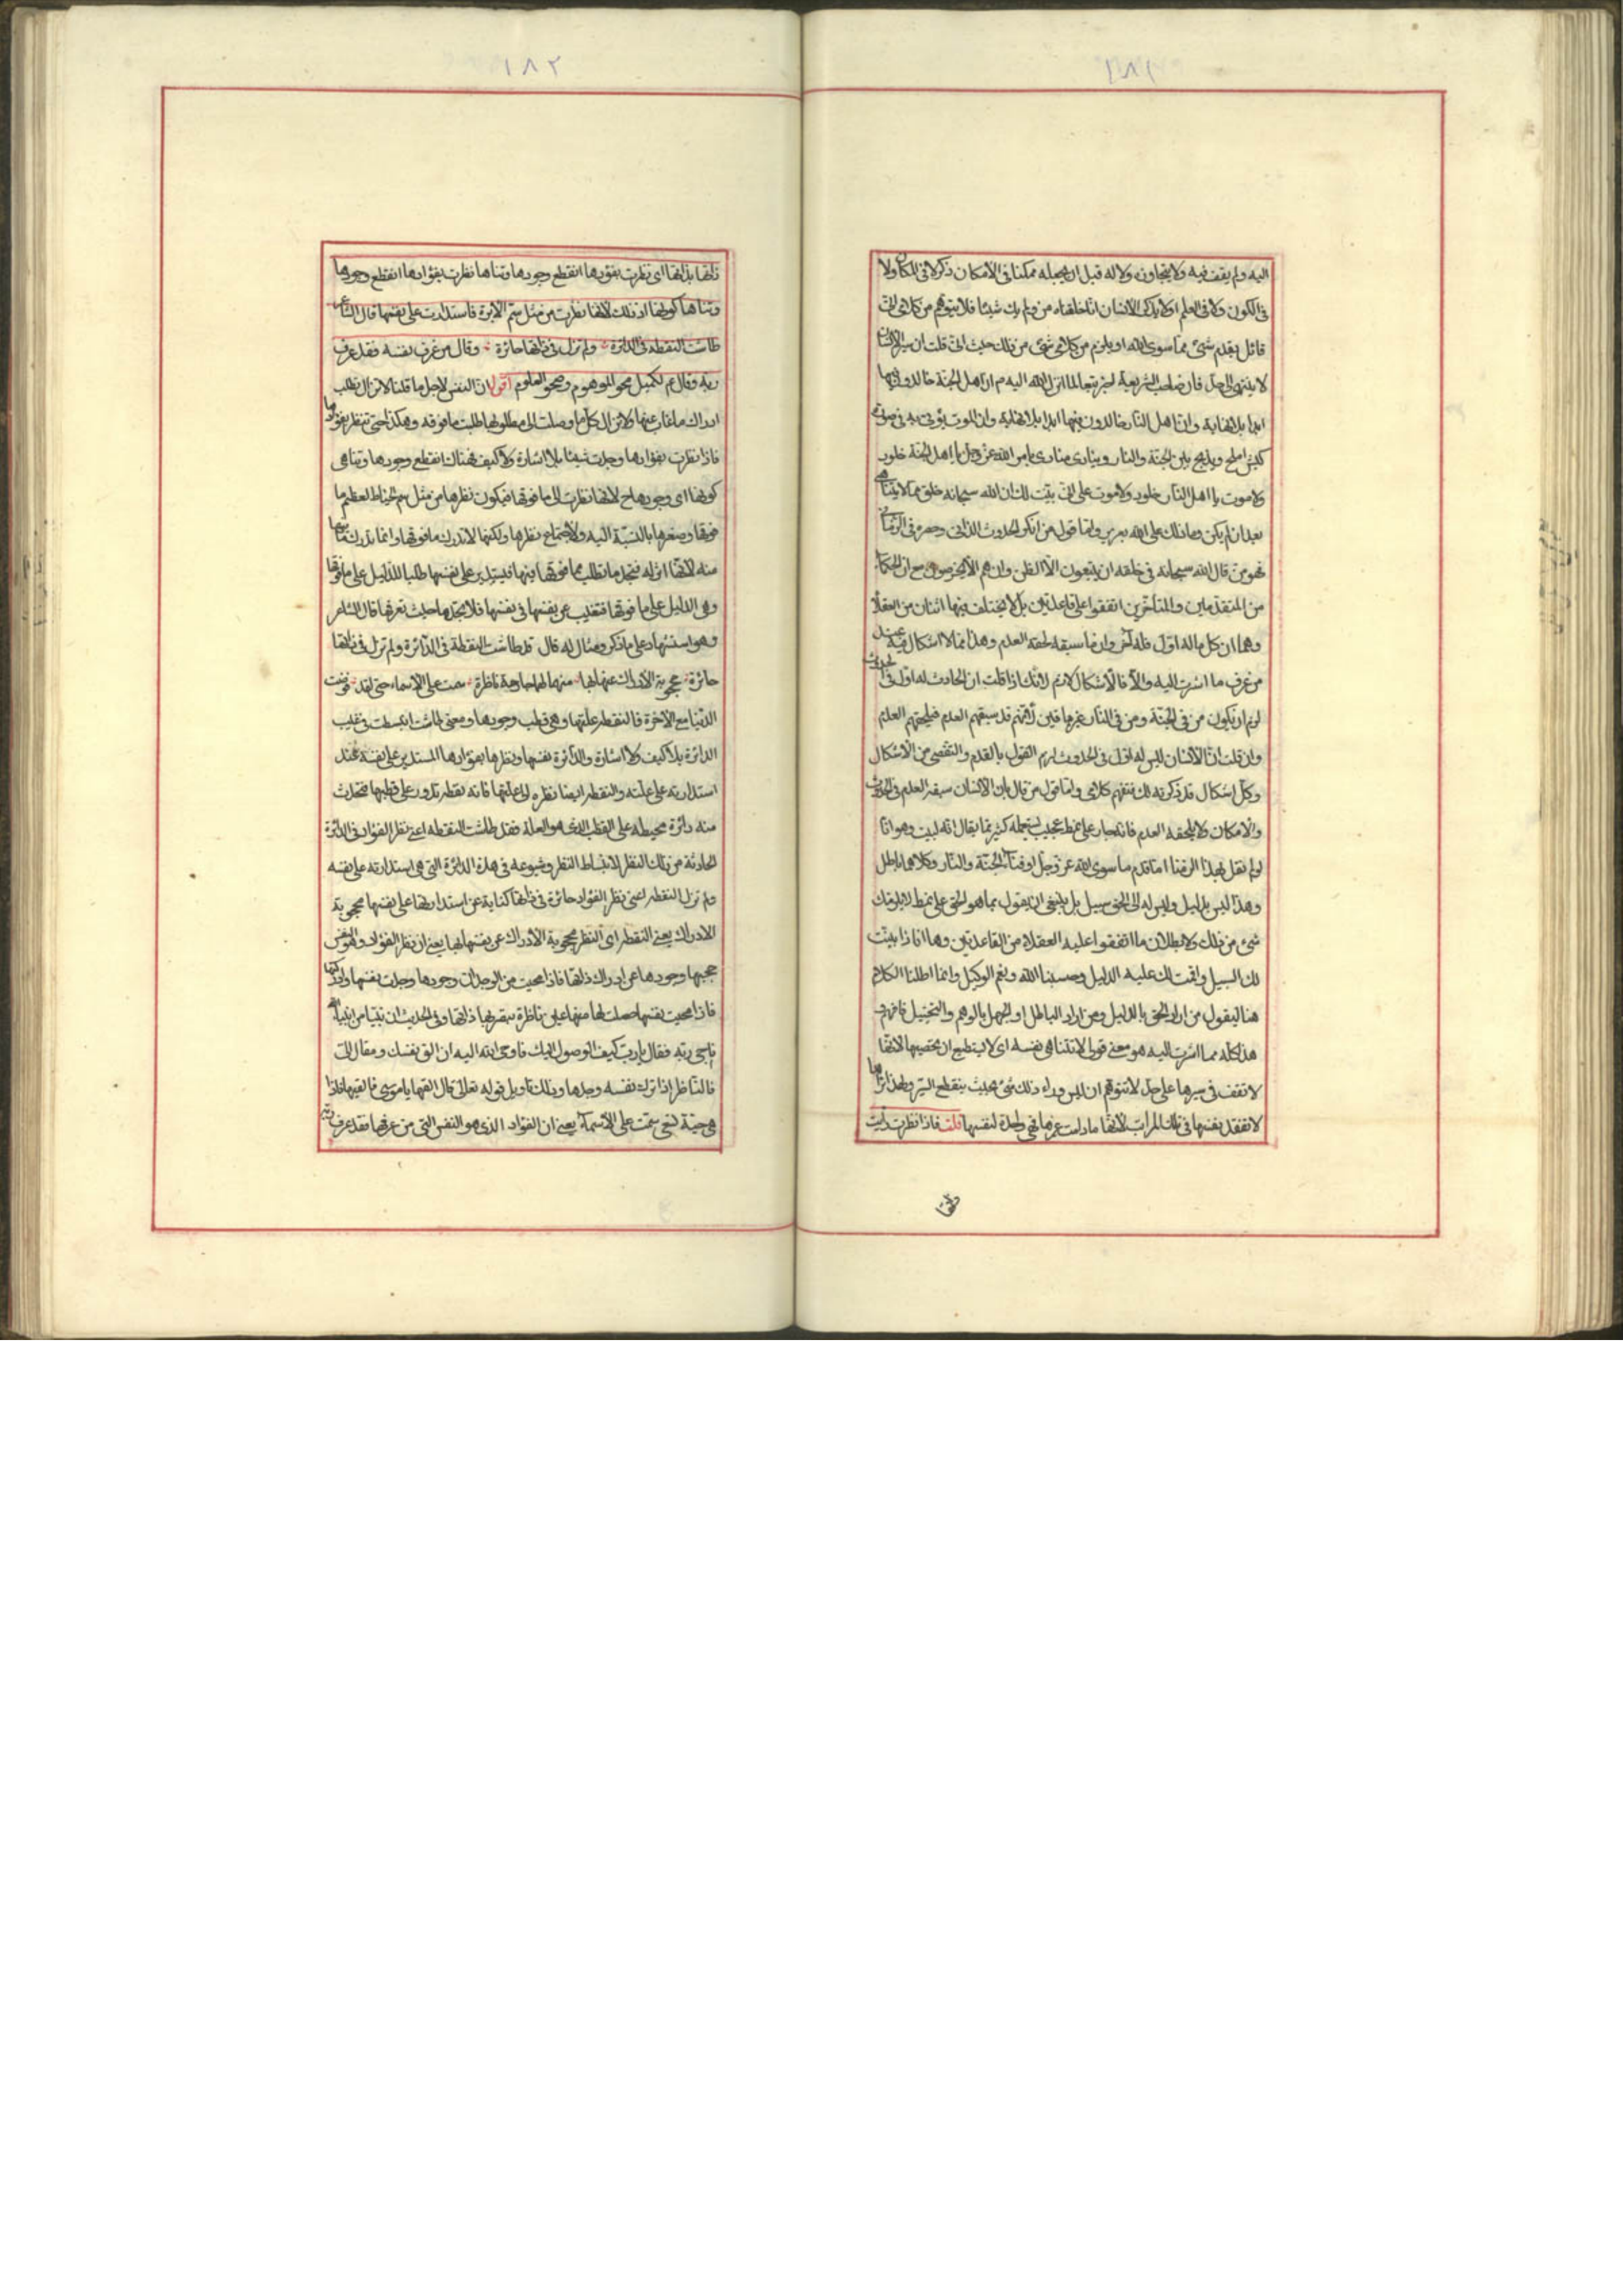 ١٨١
اليه ولم يقف فيه ولا يتجاوزه ولا له قبل ان يجعله ممكنا فى الامكان ذكر لا فى المكان ولا
فى الكون ولا فى العلم اولا يذكر الانسان انا خلقناه من قبل ولم يك شيئا فلا يتوهم من كلامى انى
قائل بقدم شئ مما سوى الله او يلزم من كلامى شئ من ذلك حيث انى قلت ان سير الانسان
لا ينتهى الى حد فان صاحب الشريعة اخبر تبعا لما انزل الله اليه ان اهل الجنة خالدون فيها
ابدا بلا نهاية وان اهل النار خالدون فيها ابدا بلا نهاية وان الموت يؤتى به فى صورة
كبش املح ويذبح بين الجنة والنار وينادى مناد بامر الله عز وجل يا اهل الجنة خلود
ولا موت يا اهل النار خلود ولا موت على انى بينت لك ان الله سبحانه خلق مما لا يتناهى
بعد ان لم يكن وما ذلك على الله بعزيز واما قول من انكر الحدوث الذاتى وحصره فى الزمان
فهو ممن قال الله سبحانه فى خلقه ان يتبعون الا الظن وان هم الا يخرصون مع ان الحكماء
من المتقدمين والمتأخرين اتفقوا على قاعدتين بل لا يختلف فيها اثنان من العقلاء
وهما ان كل ما له اول فله آخر وان ما سبقه لحقه العدم وهذا مما لا اشكال فيه عند
من عرف ما اشرت اليه والا فالاشكال لازم لانك اذا قلت ان الحادث له اول فى الحدوث
لزم ان يكون من فى الجنة ومن فى النار غيرها فين لانهم قد سبقهم العدم فيلحقهم العدم
وان قلت ان الانسان ليس له اول فى الحدوث لزم القول بالقدم والتفصى من الاشكال
وكل اشكال قد ذكرته لك فتفهم كلامى واما قول من قال بان الانسان سبقه العدم فى الحدوث
والامكان ولا يلحقه العدم فانه جار على نمط عجيب يستعمله كثير مما يقال انه لبيب وهو انا
لو لم نقل بهذا لزمنا اما قدم ما سوى الله عز وجل او فناء الجنة والنار وكلاهما باطل
وهذا ليس بدليل وليس له الى الحق سبيل بل ينبغى ان يقول بما هو الحق على نمط لا يلزمك
شئ من ذلك ولا بطلان ما اتفقوا عليه العقلاء من القاعدتين وها انا ذا بينت
لك السبيل واقمت لك عليه الدليل وحسبنا الله ونعم الوكيل وانما اطلنا الكلام
هنا ليقول من اراد الحق بالدليل ومن اراد الباطل او الجهل بالوهم والتخييل فافهم
هذا كله مما اشرت اليه هو معنى قولى لا تتناهى نفسه اى لا يستطيع ان يحصيها لانها
لا تقف فى سيرها على حد لا تتوهم ان ليس وراء ذلك شئ بحيث ينقطع السير ولهذا تراها
لا تفقد نفسها فى تلك المراتب لانها ما دامت غيرها فهى واجدة لنفسها قلت فاذا نظرت رأيت
١٨٢
ذاتها بذاتها اى نظرت بفؤدها انقطع وجودها وتناها نظرت بفؤادها انقطع وجودها
وتناها كونها اذ ذلك لانها نظرت من مثل سم الابرة فاستدارت على نفسها قال الشاعر
طاشت النقطه فى الدائرة ولم تزل فى ذاتها حائرة وقال من عرف نفسه فقد عرف
ربه وقال ع لكميل محو الموهوم وصحو المعلوم اقول ان النفس لاجل ما قلنا لا تزال تطلب
ادراك ما غاب عنها ولا تزال كل ما وصلت الى مطلوبها طلبت ما فوقه وهكذا حتى تنظر بفؤادها
فاذا نظرت بفؤادها وجدت شيئا بلا اشارة ولا كيف فهناك انقطع وجودها وتناهى
كونها اى وجودها ح لانها نظرت الى ما فوقها فيكون نظرها من مثل سم الخياط لعظم ما
فوقها وصغرها بالنسبة اليه ولاجتماع نظرها ولكنها لا تدرك ما فوقها وانما تدرك ما فيها
منه لانها اثر له فتجد ما تطلب مما فوقها فيها فتستدير على نفسها طلبا للدليل على ما فوقها
وهى الدليل على ما فوقها فتغيب عن نفسها فى نفسها فلا تجدها حيث تعرفها قال الشاعر
وهو استشهاد على ما ذكر ومثال له قال قد طاشت النقطة فى الدائرة ولم تزل فى ذاتها
حائرة محجوبة الادراك عنها بها منها لها جارحة ناظرة سمت على الاسماء حتى لقد فوضت
الدنيا مع الاخرة فالنقطة علتها وهى قطب وجودها ومعنى طاشت انبسطت فى غيب
الدائرة بلا كيف ولا اشارة والدائرة نفسها ونظرها بفؤادها المستدير على نفسه عند
استدارته على علته والنقطة ايضا نظره الى علتها فانه نقطة تدور على قطبها فتحدث
منه دائرة محيطة على القطب الذى هو العلة فقد طاشت النقطه اعنى نظر الفؤاد فى الدائرة
الحادثة من ذلك النظر لانبساط النظر وشيوعه فى هذه الدائرة التى هى استدارته على نفسه
ولم تزل النقطة اعنى نظر الفؤاد حائرة فى ذاتها كناية عن استدارتها على نفسها محجوبة
الادراك يعنى النقطة اى النظر محجوبة الادراك عن نفسها بها يعنى ان نظر الفؤاد وهو النفس
حجبها وجودها عن ادراك ذاتها فاذا محيت من الوجدان وجودها وجدت نفسها وادركتها
فاذا محيت نفسها حصلت لها منها عين ناظرة تبصر بها ذاتها وفى الحديث ان نبيا من انبياء الله
ناجى ربه فقال يا رب كيف الوصول اليك فاوحى الله اليه ان الق نفسك وتعال الى
فالناظر اذا ترك نفسه وجدها وذلك تاويل قوله تعالى قال القها يا موسى فالقيها فاذا
هى حية تسعى سمت على الاسماء يعنى ان الفؤاد الذى هو النفس التى من عرفها فقد عرف ربه